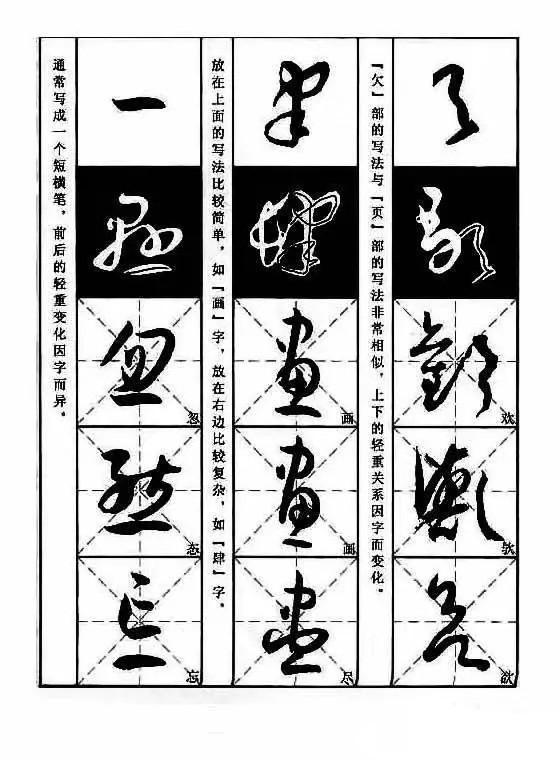 欢
欤
欲
『欠』部的写法与『页』部的写法非常相似，上下的轻重关系因字而变化。
画
画
尽
放在上面的写法比较简单，如『画』字，放在右边比较复杂，如『肆』字。
一
忽
态
忘
通常写成一个短横笔，前后的轻重变化因字而异。